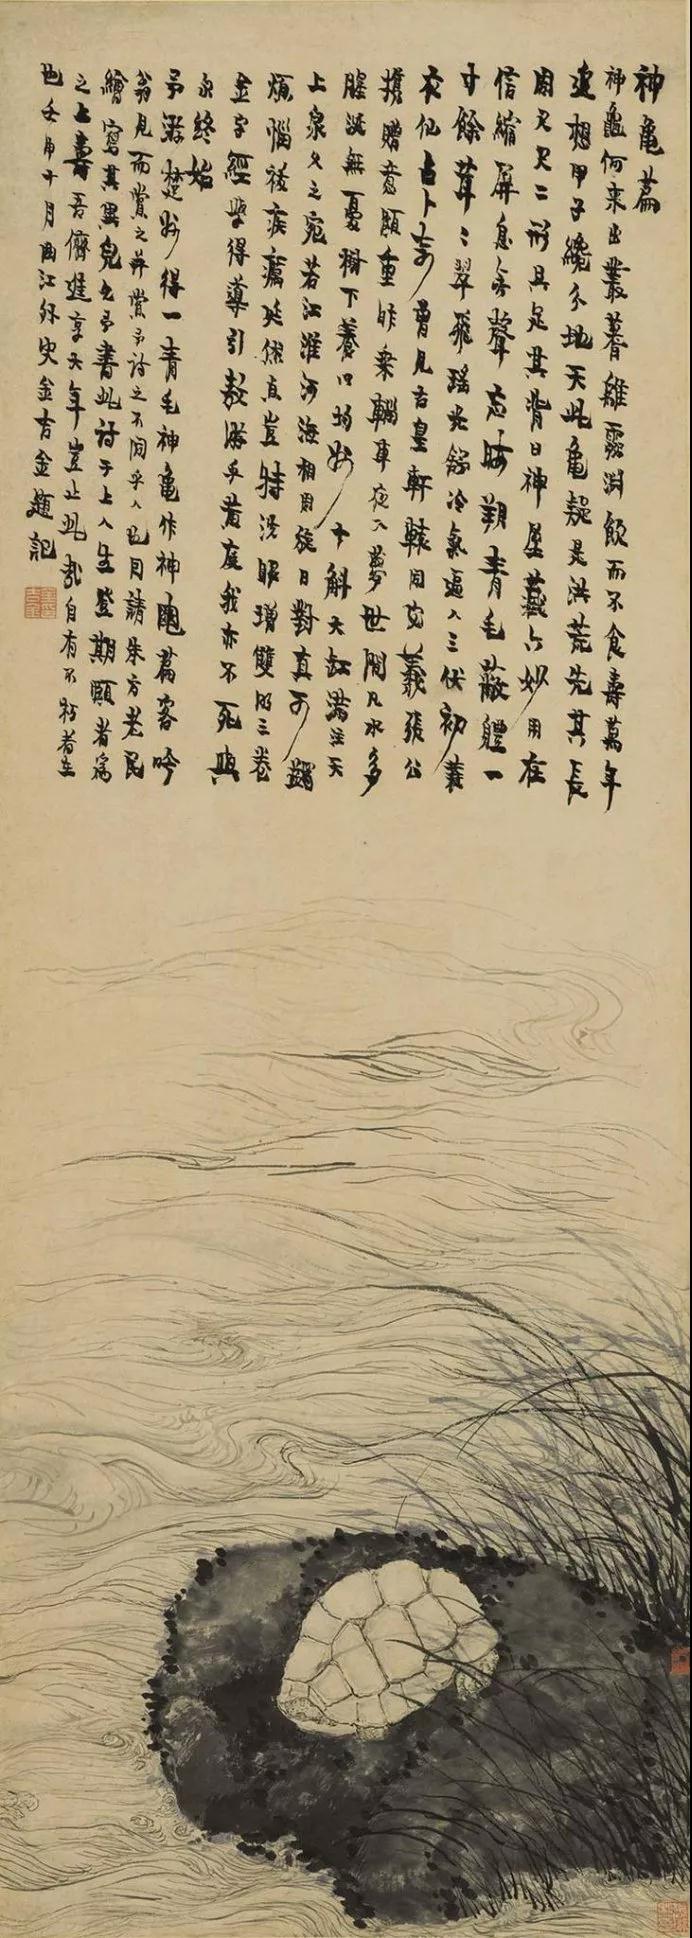 神龜篇
神龜何来出叢蓍離靈渊飲而不食壽萬年
遠想甲子纔分地天此龜疑是洪荒先其長
用又尺二形具足其背曰神屋藏六妙用在
信縮屏息無聲忘晦朔青毛蔽體一
寸餘茸二翠飛瑶光發冷氣逼人三伏初蓑
衣仙占卜吉曽見古皇軒轅同宓羲張公
携贈意頗重昨乘輜車夜入夢世間凡水多
腥涎無憂樹下養口均
上泉久之宛若江淮河海相周旋日對真可蠲
煩惱祛疾癘延保真豈特洗眼增雙明三卷
金字經學得導引敖游乎黄庭我亦不死與
永終始
予游楚州得一青毛神龜作神龜篇客吟
翁見而賞之并賞予詩之不同乎人也因請朱方老民
繪寫其異皃也予書此詩于上人生登期頤者為
之上壽吾儕進享大年豈止此哉自有不朽者在
也壬申十月曲江外史金吉金題記